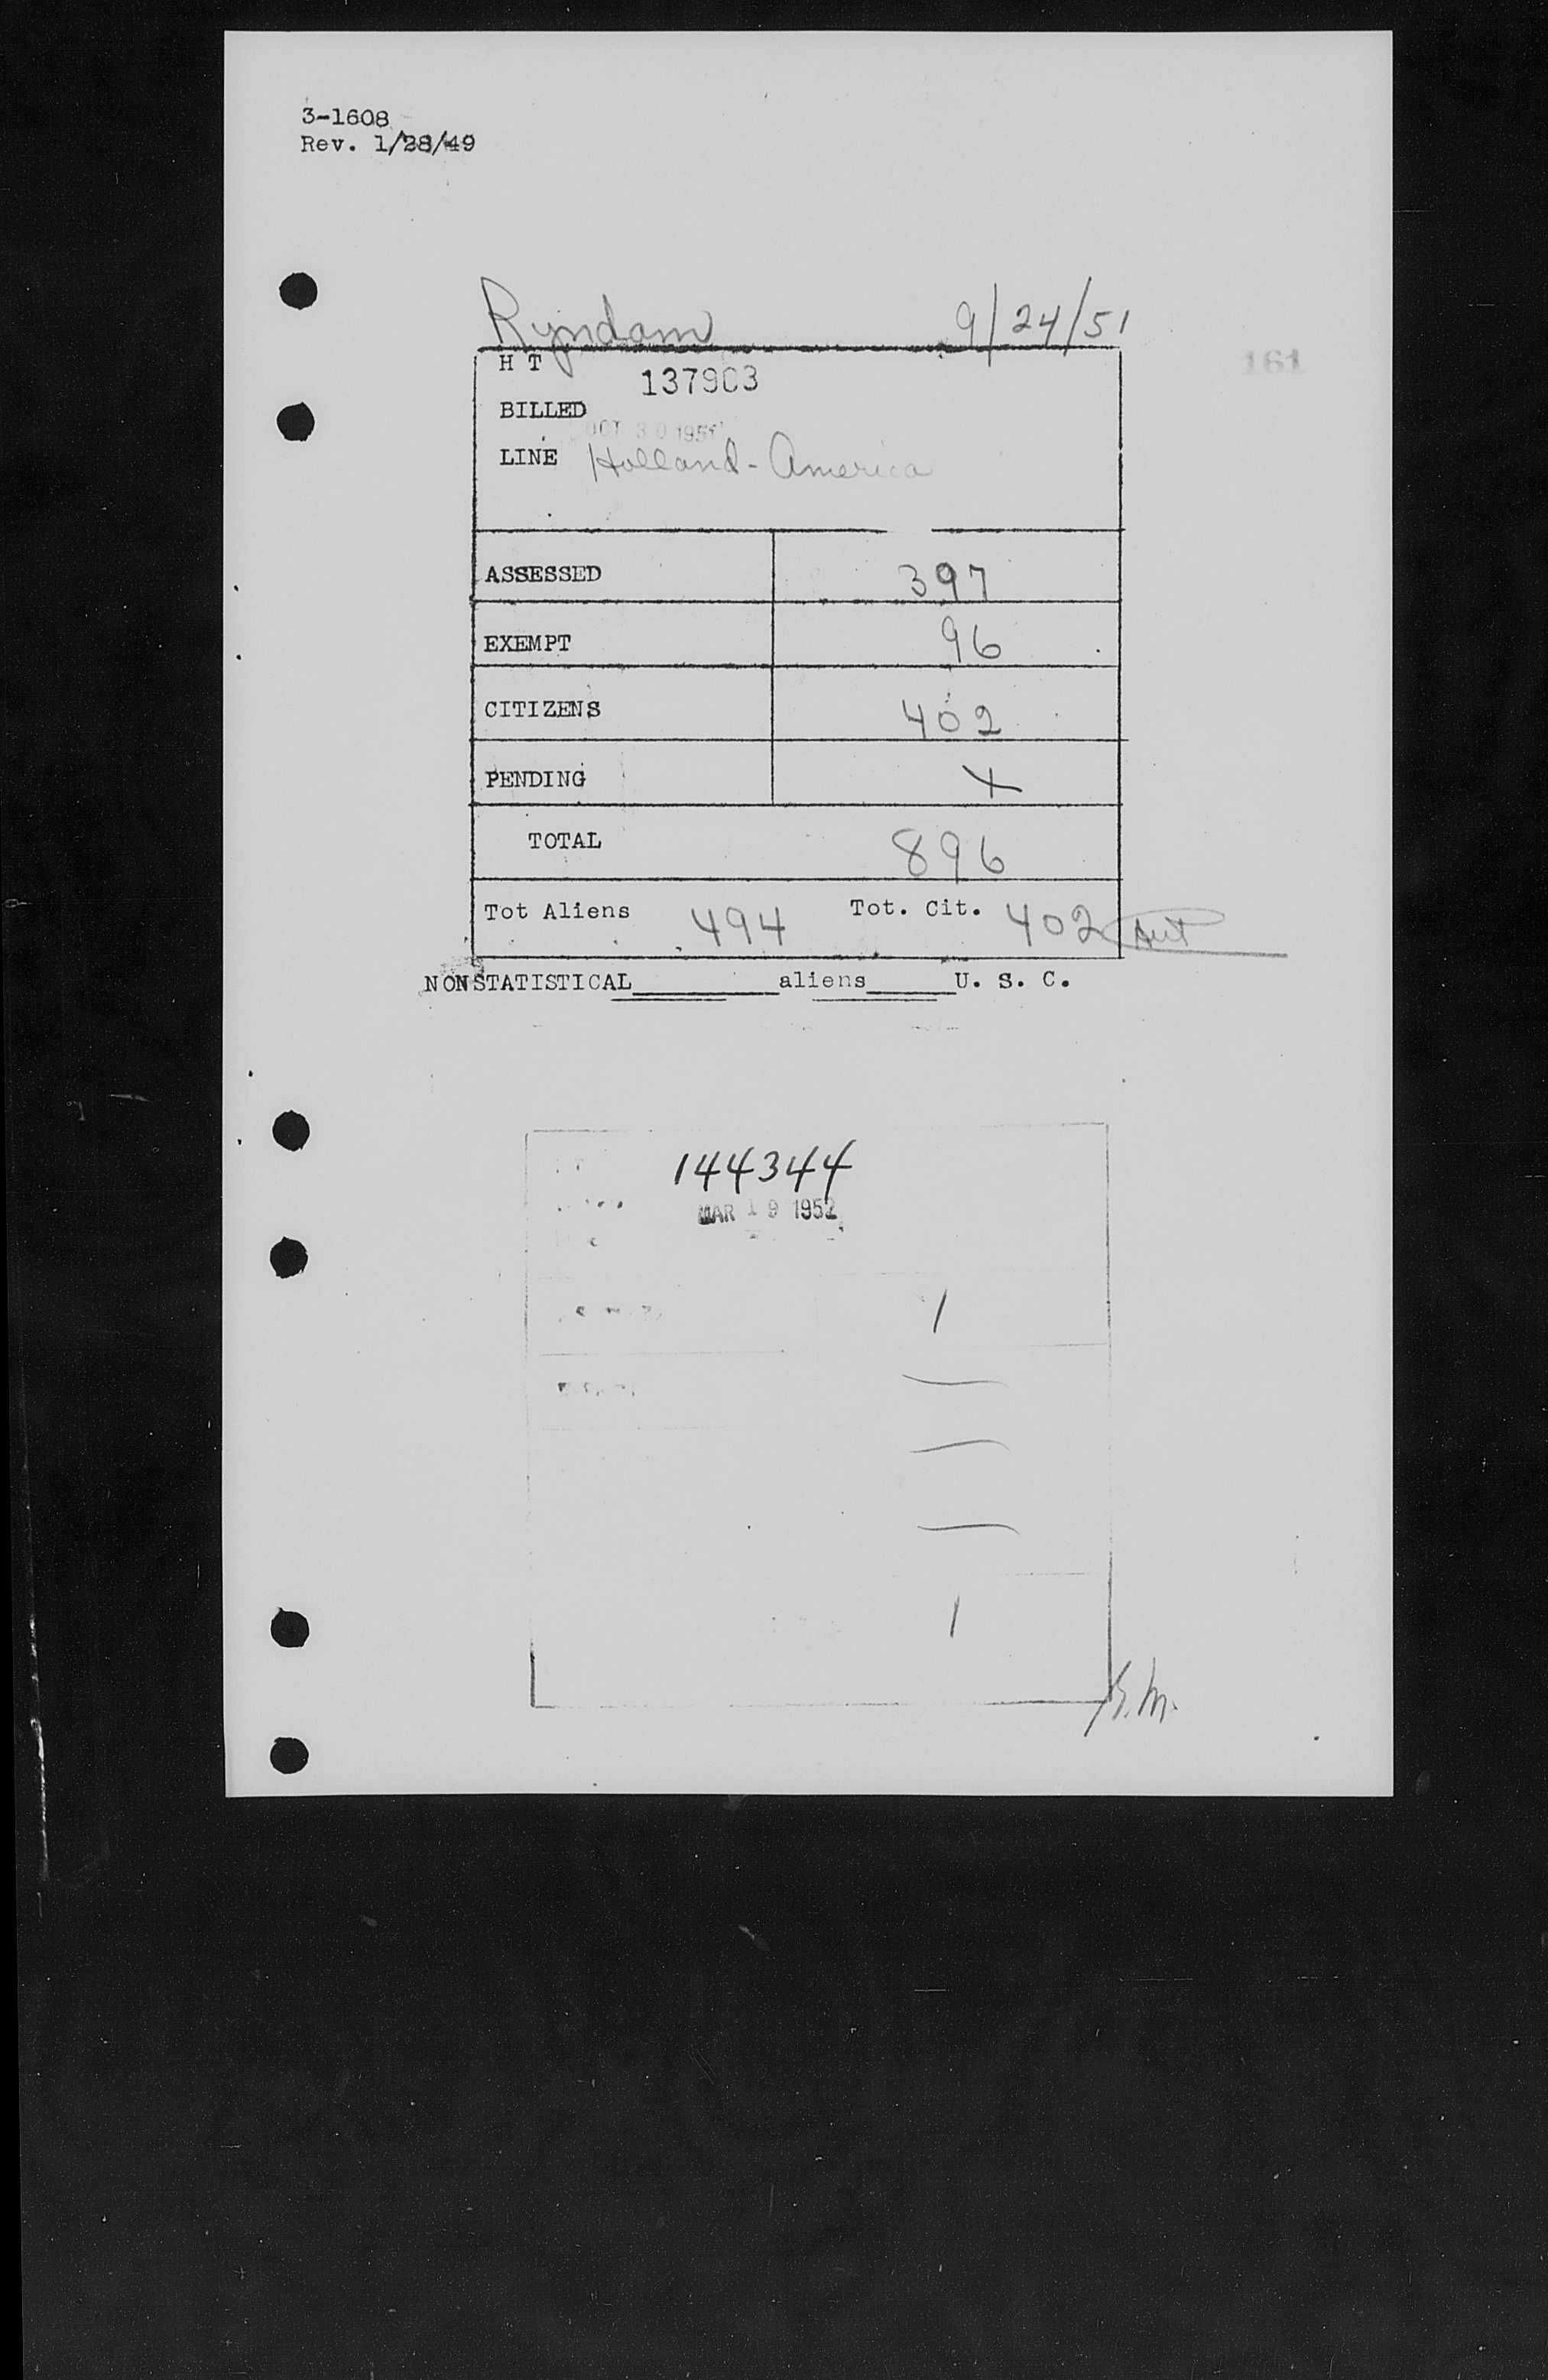 3-1608
Rev. 1/28/49
Ryndam 9/24/51
161
H T 137903
BILLED
OCT 30 1951
LINE Holland-America
ASSESSED 397
EXEMPT 96
CITIZENS 402
PENDING X
TOTAL 896
Tot Aliens 494 Tot. Cit. 402
NONSTATISTICAL aliens U. S. C.
144344
MAR 19 1952
1
1